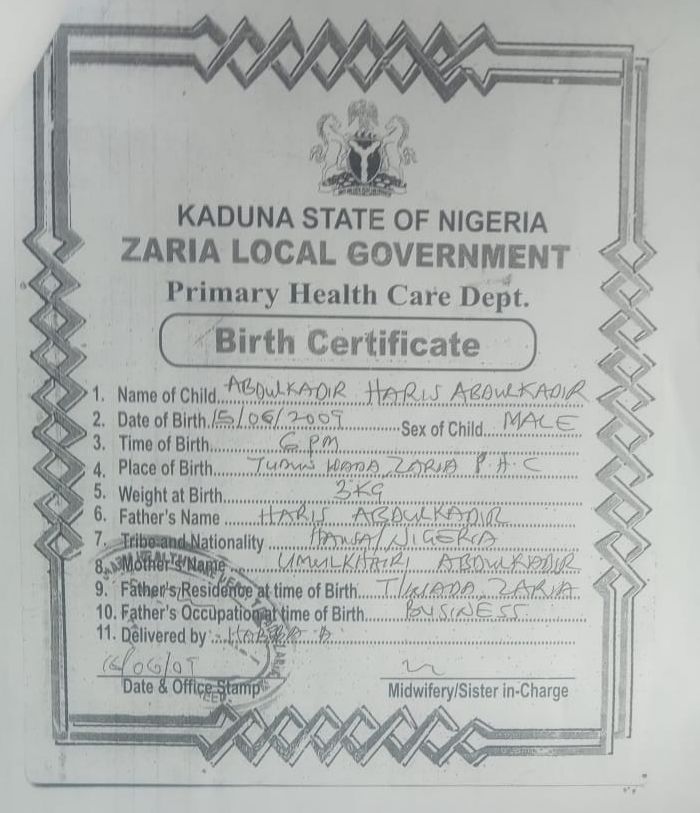 KADUNA STATE OF NIGERIA
ZARIA LOCAL GOVERNMENT
Primary Health Care Dept.
Birth Certificate
1. Name of Child ABDULKADIR HARIS ABDULKADIR
2. Date of Birth 15/06/2009 Sex of Child MALE
3. Time of Birth 6 PM
4. Place of Birth TUDUN WADA ZARIA P.H.C
5. Weight at Birth 3KG
6. Father's Name HARIS ABDULKADIR
7. Tribe and Nationality HAUSA/NIGERIA
8. Mother's Name UMULKHAIRI ABDULKADIR
9. Father's Residence at time of Birth T/WADA ZARIA
10. Father's Occupation at time of Birth BUSINESS
11. Delivered by
16/06/09
Date & Office Stamp Midwifery/Sister in-Charge